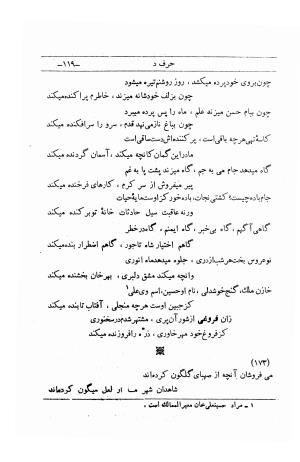 حرف د
-۱۱۹-
چون بروی خود پرده میکشد ، روز روشنم تیره میشود
چون بزلف خود شانه میزند ، خاطرم پراکنده میکند
چون بیام حسن میزند علم ، ماه را پس پرده میبرد
چون بباغ ناز می‌نهد قدم ، سرو را سرافکنده میکند
کاسه تهی هر چه باقی است ، پر کننده اش دست ساقی است
ما در این گمان کانچه میکند ، آسمان گردنده میکند
گاه میدهد جام می به جم ، گاه میزند پشت پا به غم
پیر میفروش از سر کرم ، کارهای فرخنده میکند
جام باده چیست؟ کشتی نجات، باده خور کز او ست مایهٔ حیات
ورنه عاقبت سیل حادثات خانهٔ تو بر کنده میکند
گاهی آگهیم ، گاه بی‌خبر ، گاه ایمنم ، گاه در خطر
گاهم اختیار شاه تاجور ، گاهم اضطرار بنده میکند
نوعروس بخت هر شب از دری ، جلوه میدهد ماه انوری
وانچه میکند مشق دلبری ، بهر خان بخشنده میکند
خازن ملک، گنج خوشدلی ، نام او حسین، اسم وی علی۱
کز جبین اوست هر چه منجلی ، آفتاب تابنده میکند
زان فروغی از شور آن پری ، مشتهر شدم در سخنوری
کز فروغ خود مهر خاوری ، ذره را فروزنده میکند
(۱۷۳)
می فروشان آنچه از صهبای گلگون کرده‌اند
شاهدان شهر ما از لعل میگون کرده‌اند
۱ - مراد حسینعلی خان معیرالممالک است .